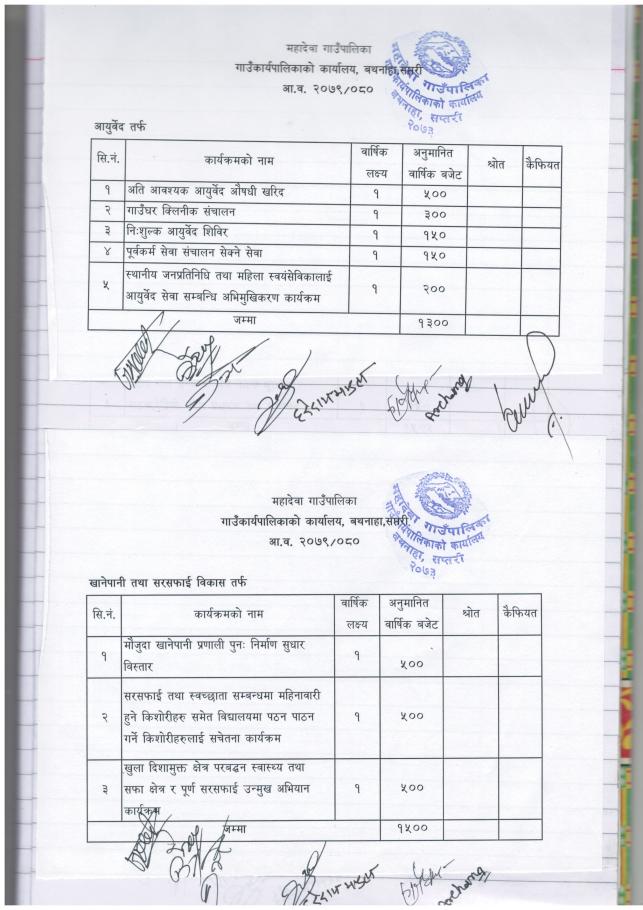 महादेवा गाउँपालिका
गाउँकार्यपालिकाको कार्यालय, बथनाहा,सप्तरी
आ.व. २०७९/०८०
महादेवा गाउँपालिका
गाउँकार्यपालिकाको कार्यालय
बथनाहा, सप्तरी
२०७३
आयुर्वेद तर्फ
सि.नं. कार्यक्रमको नाम वार्षिक लक्ष्य अनुमानित वार्षिक बजेट श्रोत कैफियत
१ अति आवश्यक आयुर्वेद औषधी खरिद १ ५००
२ गाउँघर क्लिनीक संचालन १ ३००
३ निःशुल्क आयुर्वेद शिविर १ १५०
४ पूर्वकर्म सेवा संचालन सेक्ने सेवा १ १५०
५ स्थानीय जनप्रतिनिधि तथा महिला स्वयंसेविकालाई
आयुर्वेद सेवा सम्बन्धि अभिमुखिकरण कार्यक्रम १ २००
जम्मा १३००
महादेवा गाउँपालिका
गाउँकार्यपालिकाको कार्यालय, बथनाहा,सप्तरी
आ.व. २०७९/०८०
महादेवा गाउँपालिका
गाउँकार्यपालिकाको कार्यालय
बथनाहा, सप्तरी
२०७३
खानेपानी तथा सरसफाई विकास तर्फ
सि.नं. कार्यक्रमको नाम वार्षिक लक्ष्य अनुमानित वार्षिक बजेट श्रोत कैफियत
१ मौजुदा खानेपानी प्रणाली पुनः निर्माण सुधार
विस्तार १ ५००
२ सरसफाई तथा स्वच्छाता सम्बन्धमा महिनाबारी
हुने किशोरीहरु समेत विद्यालयमा पठन पाठन
गर्ने किशोरीहरुलाई सचेतना कार्यक्रम १ ५००
३ खुला दिशामुक्त क्षेत्र परबद्धन स्वास्थ्य तथा
सफा क्षेत्र र पूर्ण सरसफाई उन्मुख अभियान
कार्यक्रम १ ५००
जम्मा १५००